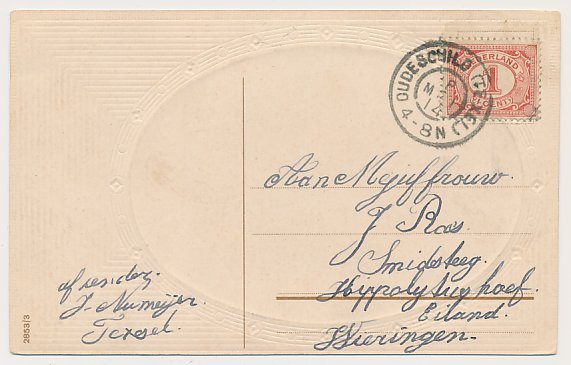 OUDESCHILD (TEXEL)
4-8N
NEDERLAND
1
CENTS
Aan Mejuffrouw.
J Ros
Smidsteeg.
Hippolytushoef.
Eiland.
Wieringen-
afzender.
J- Numeijer.
Texsel.
2853/3